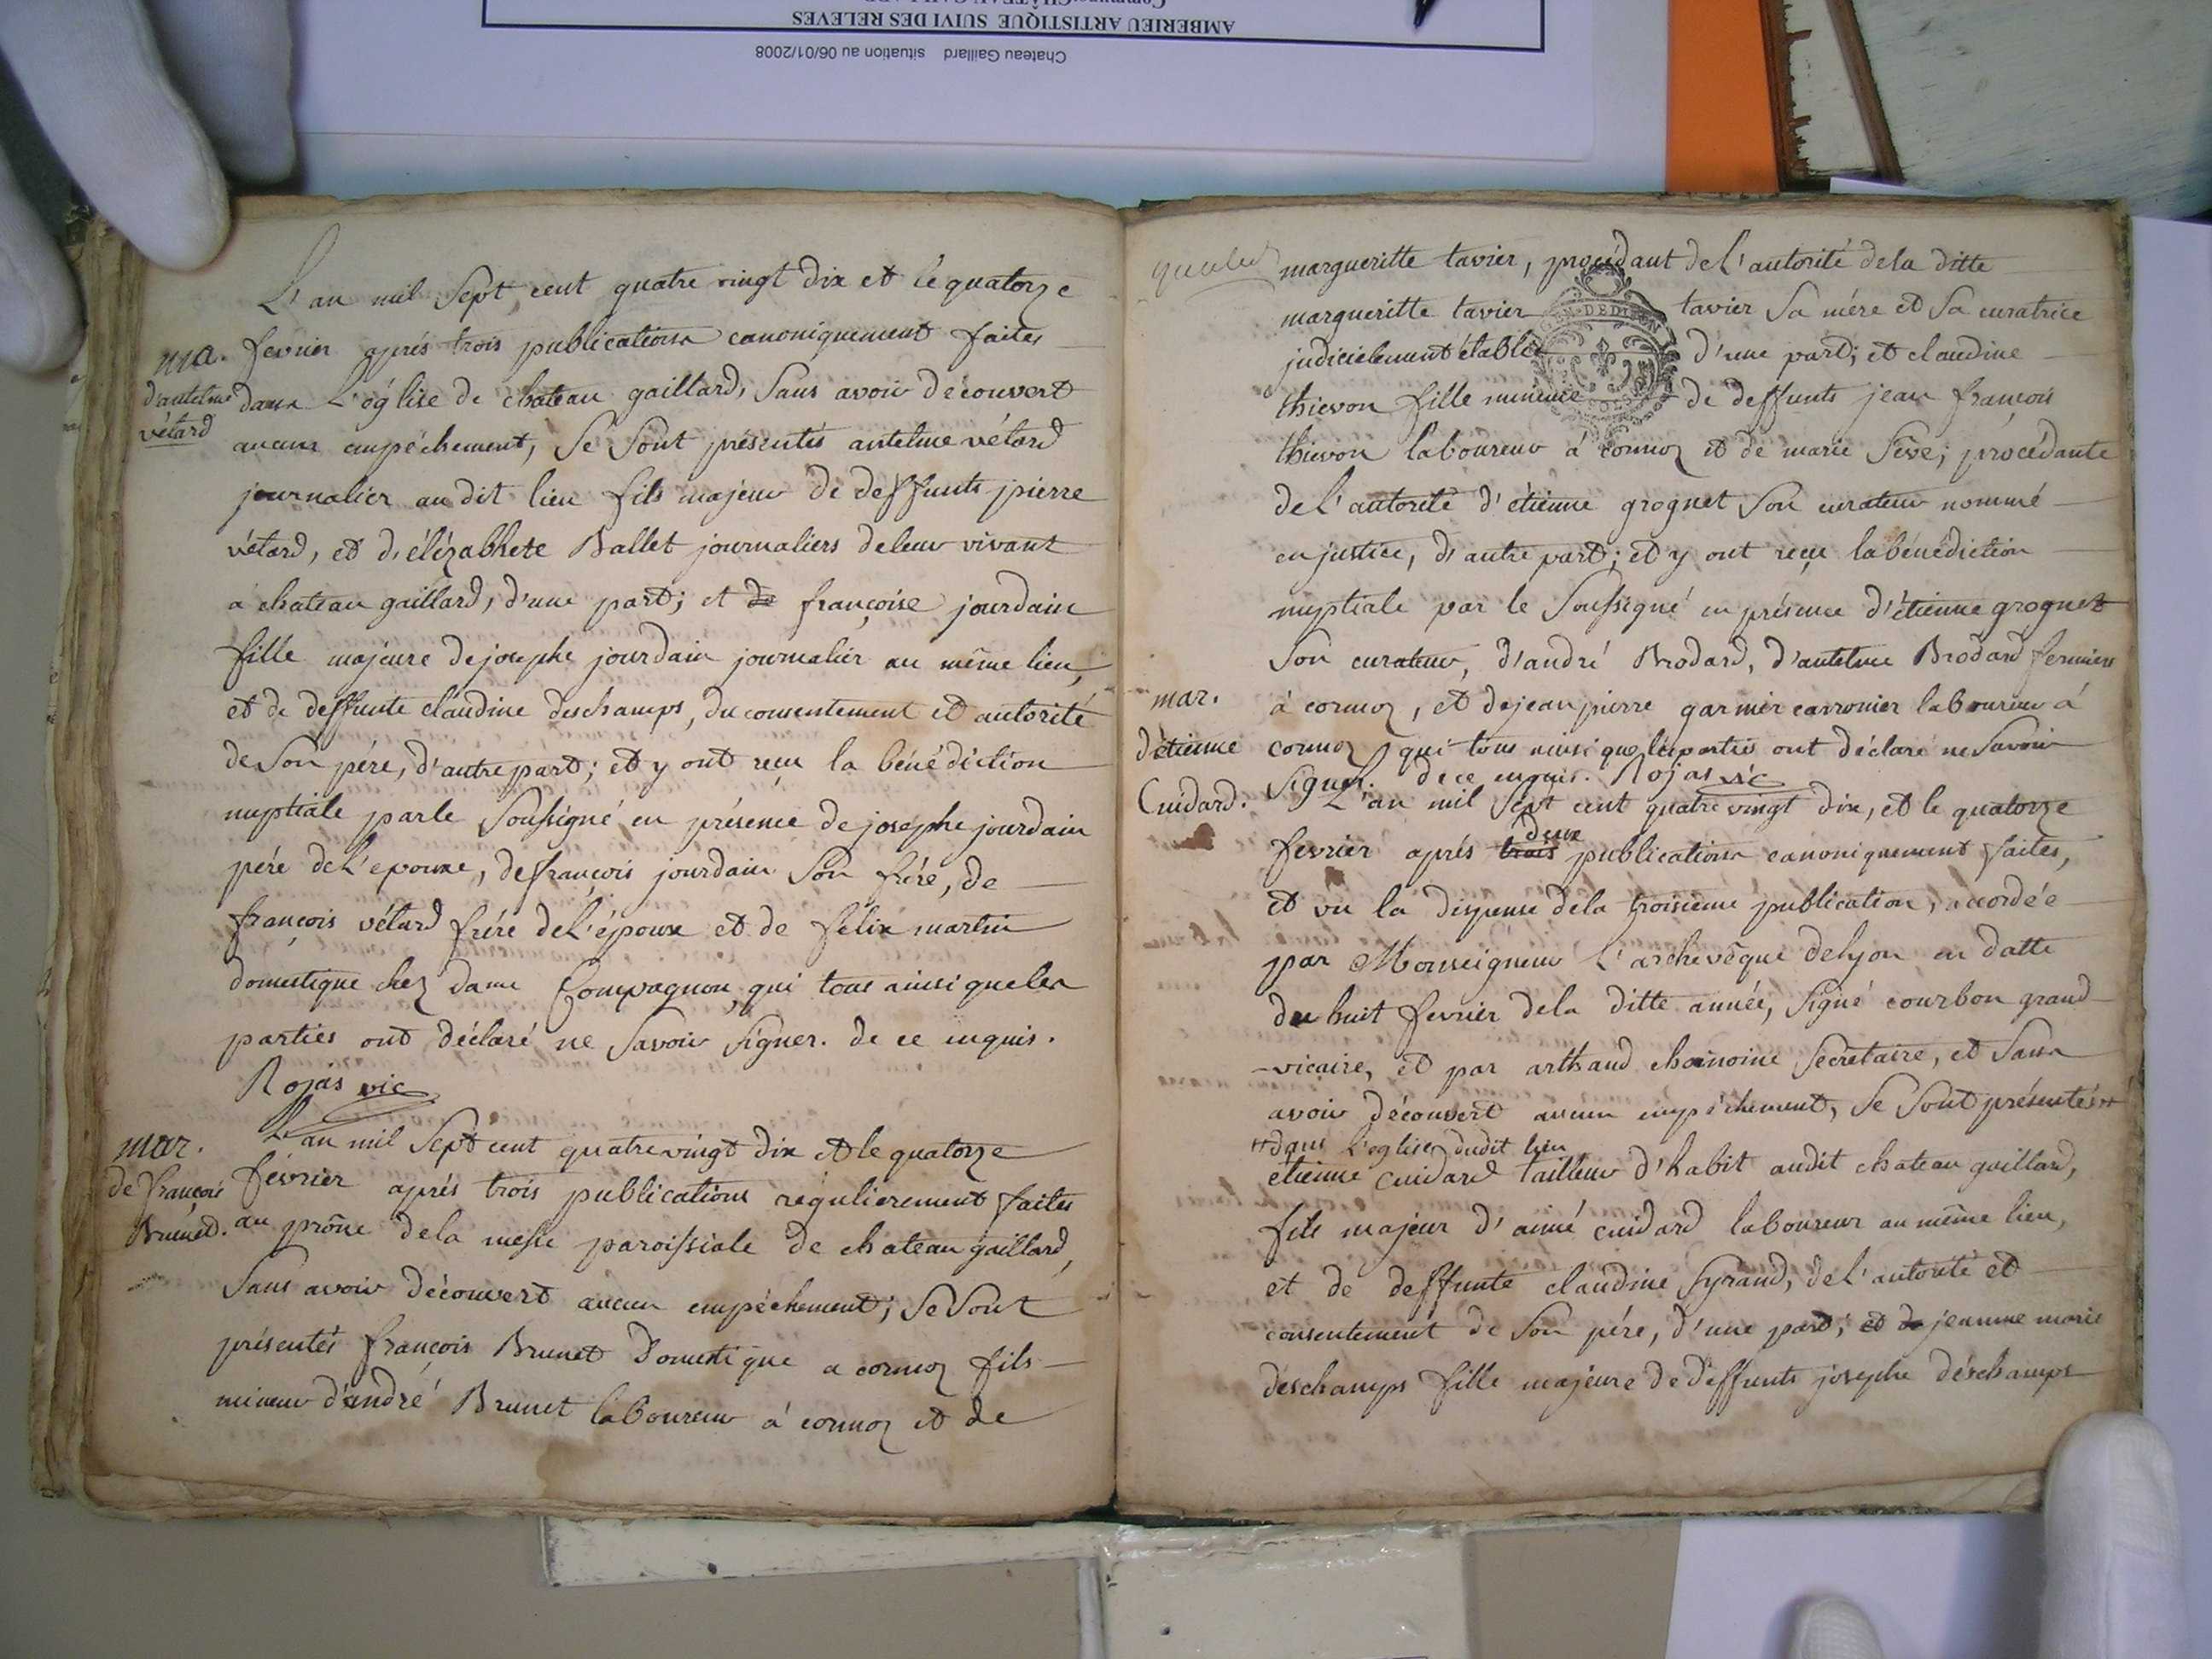 Chateau Gaillard situation au 06/01/2008
AMBERIEU ARTISTIQUE SUIVI DES RELEVES
L'an mil Sept cent quatre vingt dix et le quatorze
fevrier aprés trois publications canoniquement faites
dans L'église de chateau gaillard, Sans avoir découvert
aucun empéchement, Se Sont présentés antelme vétard
journalier au dit lieu fils majeur de deffunts pierre
vétard, et d'élézabhete Ballet journaliers de leur vivant
a chateau gaillard, d'une part; et de françoise jourdain
fille majeure de josephe jourdain journalier au même lieu,
et de deffunte claudine deschamps, du consentement et autorité
de Son pére, d'autre part; et y ont reçu la bénédiction
nuptiale par le Soussigné en présence de josephe jourdain
pére de L'epouse, de françois jourdain Son frére, de
françois vétard frére de L'époux et de félix martin
domestique chez dame Compagnon, qui tous ainsi que les
parties ont déclaré ne Savoir Signer. de ce inquis.
Rojas vic
ma.
d'antelme
vétard
L'an mil Sept cent quatre vingt dix et le quatorze
février aprés trois publications régulierement faites
au prône de la messe paroissiale de chateau gaillard,
Sans avoir découvert aucun empéchement; Se Sont
présentés françois Brunet Domestique a cormoz fils
mineur d'andré Brunet laboureur á cormoz et de
mar.
de françois
Brunet.
margueritte tavier, procédant de L'autorité de la ditte
margueritte tavier tavier Sa mére et Sa curatrice
judicielement établie d'une part; et claudine
thievon fille mineure de deffunts jean françois
thievon laboureur á cormoz et de marie Séve; procédante
de L'autorité d'étienne grognet Son curateur nommé
en justice, d'autre part; et y ont reçu la bénédiction
nuptiale par le Soussigné en présence d'étienne grognet
Son curateur, d'andré Brodard, d'antelme Brodard fermiers
à cormoz, et de jean pierre garnier carronier laboureur á
cormoz qui tous ainsi que les parties ont déclaré ne Savoir
Signer. de ce inquis. Rojas vic
mar.
d'étienne
Cuidard.
L'an mil Sept cent quatre vingt dix, et le quatorze
fevrier aprés trois deux publications canoniquement faites,
et vu la dispense de la troisiéme publication, accordée
par Monseigneur L'archevêque de lyon en datte
du huit fevrier de la ditte année, Signé courbon grand
-vicaire, et par arthaud chanoine Secretaire, et Sans
avoir découvert aucun empéchement, Se Sont présentés
dans L'eglise dudit lieu
étienne cuidard tailleur d'habit audit chateau gaillard,
fils majeur d'aimé cuidard laboureur au même lieu,
et de deffunte claudine Syrand, de L'autorité et
consentement de Son pére, d'une part; et de jeanne marie
deschamps fille majeure de deffunts josephe déschamps